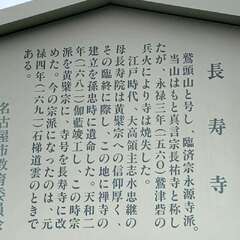 長寿寺
鷲頭山と号し、臨済宗永源寺派。
当山はもと真言宗長祐寺と称し
たが、永禄三年（一五六〇）鷲津砦の
兵火により寺は焼失した。
江戸時代、大高領主志水忠継の
母長寿院は黄檗宗への信仰厚く、
その臨終に際し、この地に禅寺の
建立を孫忠時に遺命した。天和二
年（一六八二）伽藍竣工し、この時宗
派を黄檗宗に、寺号を長寿寺に改
めた。今の宗派になったのは、元
禄四年（一六九一）石梯道雲のときで
ある。
名古屋市教育委員会